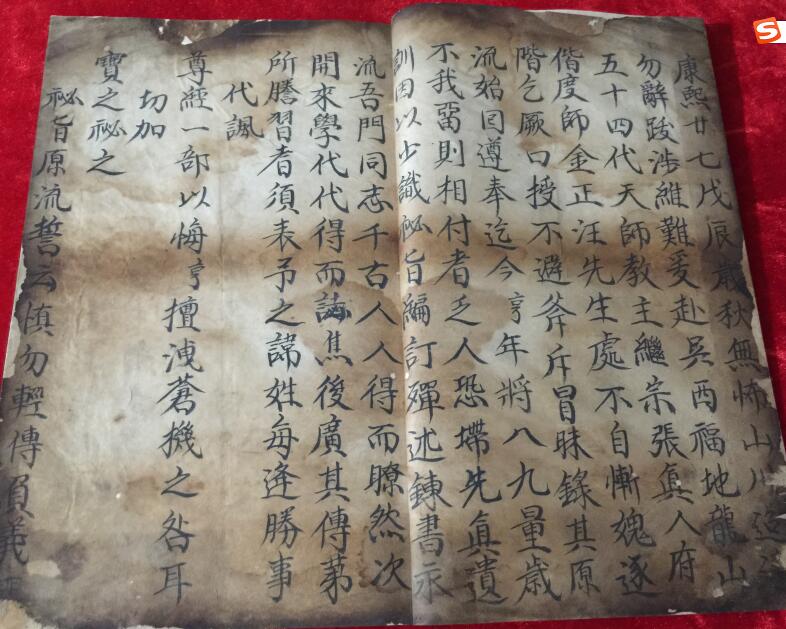 康熙廿七戊辰歲秋無怖山川
勿辭跋涉維難爰赴吳西福地龍山
五十四代天師教主繼宗張真人府
偕度師金正汪先生處不自慚媿逐
階乞厥口授不避斧斤冒昧錄其原
流始囙遵奉迄今亨年將八九量歲
不我畱則相付者乏人恐墆先真遺
訓囙以少識祕旨編訂殫述鍊書永
流吾門同志千古人人得而瞭然次
開來學代代得而誌焦後廣其傳苐
所謄習者須表予之諱姓每逢勝事
代諷
尊經一部以悔亨擅洩蒼機之咎耳
切加
寶之祕之
祕旨原流誓云慎勿輕傳負義